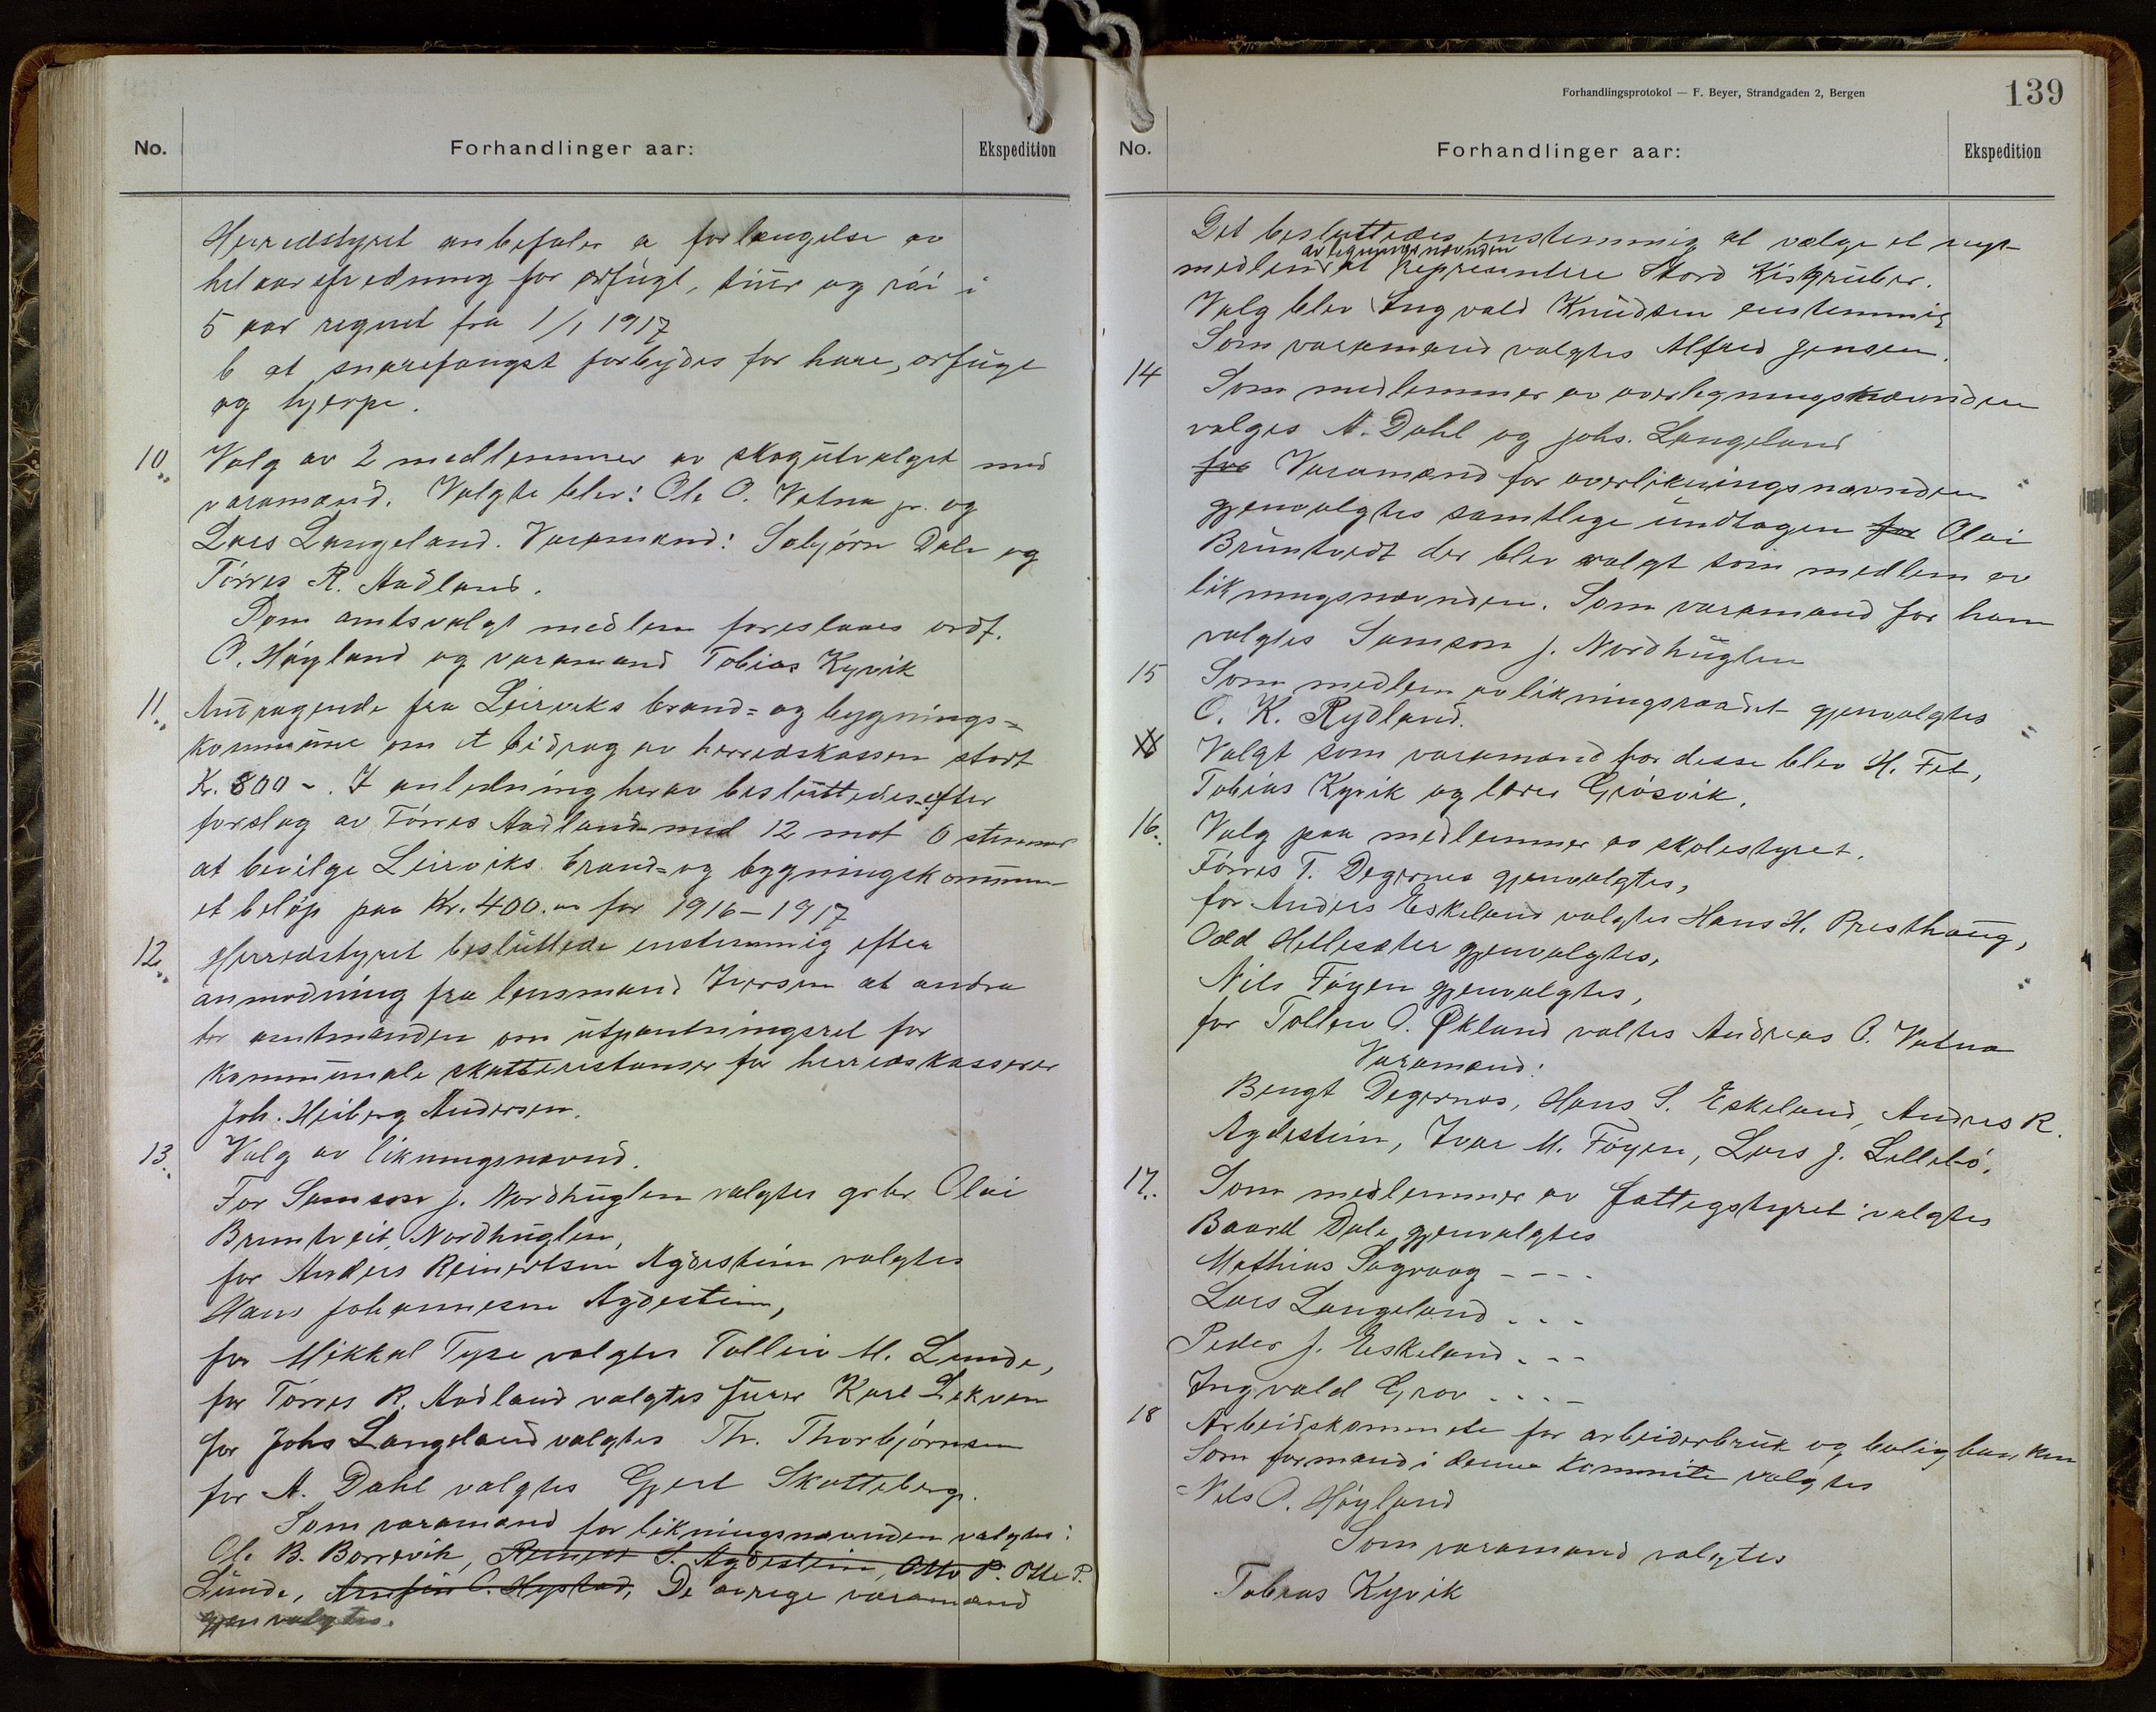 No.
Forhandlinger aar:
Ekspedition
Herredstyret anbefaler a forlængelse av
helaarsfredning for orfugl, tiur og röi i
5 aar regnet fra 1/1 1917
b at snarefangst forbydes for hare, orfugl
og hjerpe.
10. Valg av 2 medlemmer av skogutvalget med
varamænd. Valgte blev: Ole O. Vatna jr. og
Lars Langeland. Varamænd: Sebjørn Dale og
Törres R. Aadland.
Som amtsvalgt medlem foreslaaes ordf.
O. Høyland og varamand Tobias Kyvik
11. Andragende fra Leirviks brand= og bygnings=
kommune om et bidrag av herredskassen stort
Kr. 800 -. I anledning herav besluttedes efter
forslag av Törres Aadland med 12 mot 6 stemmer
at bevilge Leirviks brand= og bygningskommune
et beløp paa Kr. 400.00 for 1916-1917
12. Herredstyret besluttede enstemmig efter
anmodning fra lensmand Iversen at andra
for amtmanden om utpantningsret for
kommunale skatterestanser for herredskasserer
Joh. Heiberg Andersen.
13. Valg av likningsnævnd.
For Samson J. Nordhuglen valgtes grbr. Olai
Bruntveit, Nordhuglen,
for Anders Reinertsen Agdestein valgtes
Hans Johannesen Agdestein,
for Mikkal Tyse valgtes Tolleiv M. Lunde,
for Törres R. Aadland valgtes furer Karl Lekven
for Johs Langeland valgtes Th. Thorbjörnsen
for A. Dahl valgtes Gjert Skotteberg.
Som varamænd for likningsnævnden valgtes:
Ole B. Borrevik, Reinert S. Agdestein, Otto P. Otto P.
Lunde, Arnfin O. Hystad, De øvrige varamænd
gjenvalgtes.
Forhandlingsprotokol — F. Beyer, Strandgaden 2, Bergen
139
No.
Forhandlinger aar:
Ekspedition
Det besluttedes enstemmig at vælge et nyt
av ligningsnævnden
medlem at representere Stord Kisgruber.
Valg blev Ingvald Knudsen enstemmig
Som varamand valgtes Alfred Jensen.
14 Som medlemmer av overlegningsnævnden
valges A. Dahl og Johs. Langeland
for Varamænd for overlikningsnævnden
gjenvalgtes samtlege undtagen for Olai
Bruntvedt der blev valgt som medlem av
likningsnævnden. Som varamand for ham
valgtes Samson J. Nordhuglen
15 Som medlem av likningsraadet gjenvalgtes
O. K. Rydland.
Valgt som varamænd for desse blev H. Fet,
Tobias Kyvik og lærer Grösvik.
16. Valg paa medlemmer av skolestyret.
Törres T. Degernes gjenvalgtes,
for Anders Eskeland valgtes Hans H. Presthaug,
Odd Hellesæter gjenvalgtes,
Nils Föyen gjenvalgtes,
for Tolleiv O. Økland valtes Andreas O. Vatna
Varamænd:
Bengt Degernes, Hans S. Eskeland, Andres R.
Agdestein, Ivar M. Föyen, Lars J. Lillebö.
17. Som medlemmer av fattigstyret valgtes
Baard Dale gjenvalgtes
Mathias Sagvaag - - - -
Lars Langeland - - -
Peder J. Eskeland - - -
Ingvald Grov - - - -
18 Arbeidskommite for arbeiderbruk og boligbanken
Som formand i denne kommite valgtes
Nils O. Høyland
Som varamand valgtes
Tobias Kyvik